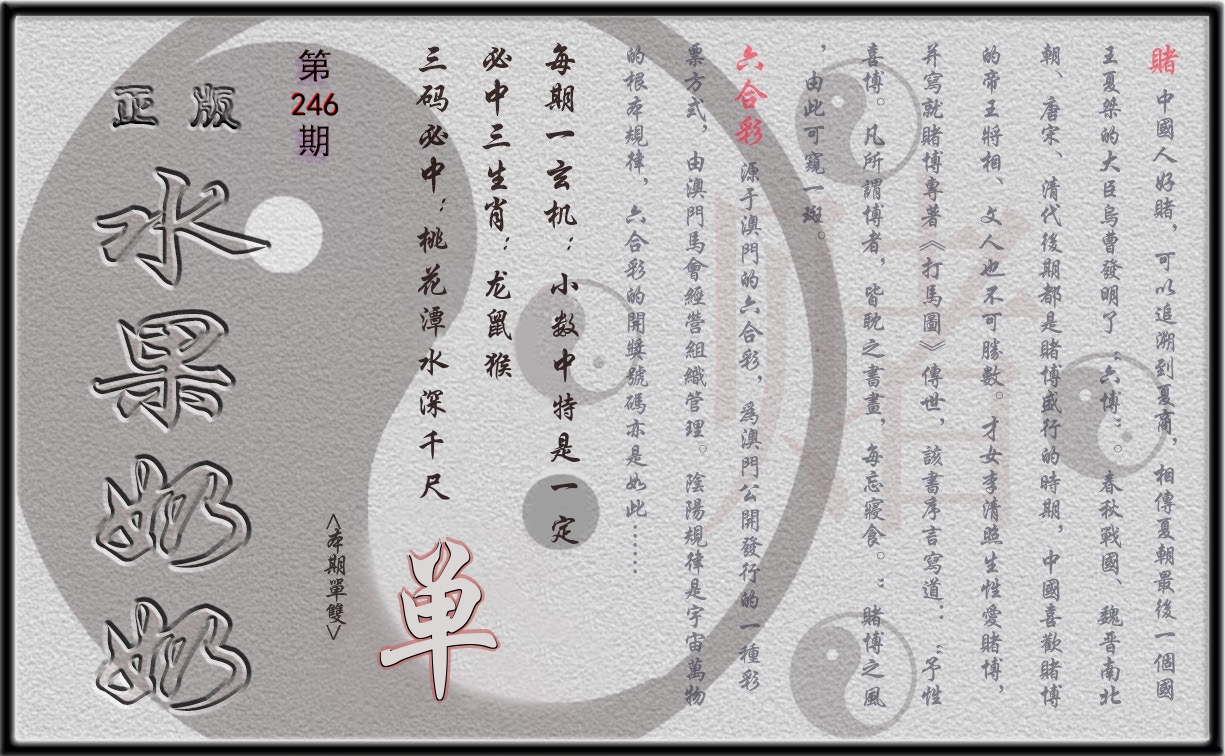 賭 中國人好賭，可以追溯到夏商，相傳夏朝最後一個國
王夏桀的大臣烏曹發明了“六博”。春秋戰國、魏晋南北
朝、唐宋、清代後期都是賭博盛行的時期，中國喜歡賭博
的帝王將相、文人也不可勝數。才女李清照生性愛賭博，
并寫就賭博專著《打馬圖》傳世，該書序言寫道：“予性
喜博。凡所謂博者，皆耽之書畫，每忘寢食。”賭博之風
，由此可窺一斑。
六合彩 源于澳門的六合彩，爲澳門公開發行的一種彩
票方式，由澳門馬會經營組織管理。陰陽規律是宇宙萬物
的根本規律，六合彩的開獎號碼亦是如此……
每期一玄机：小数中特是一定
必中三生肖：龙鼠猴
三码必中：桃花潭水深千尺
单
<本期單雙>
第
246
期
正版
水果奶奶
賭